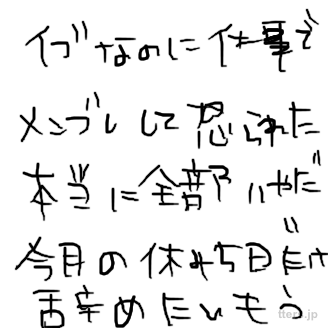 イブなのに仕事で
メンブレして怒られた
本当に全部いやだ
今月の休み5日だけ
辞めたいもう